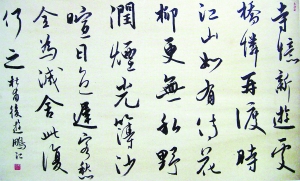 寺憶新遊處
橋憐再渡時
江山如有待花
柳更無私野
潤煙光薄沙
暄日色遲客愁
全為減舍此復
何之 杜甫後遊